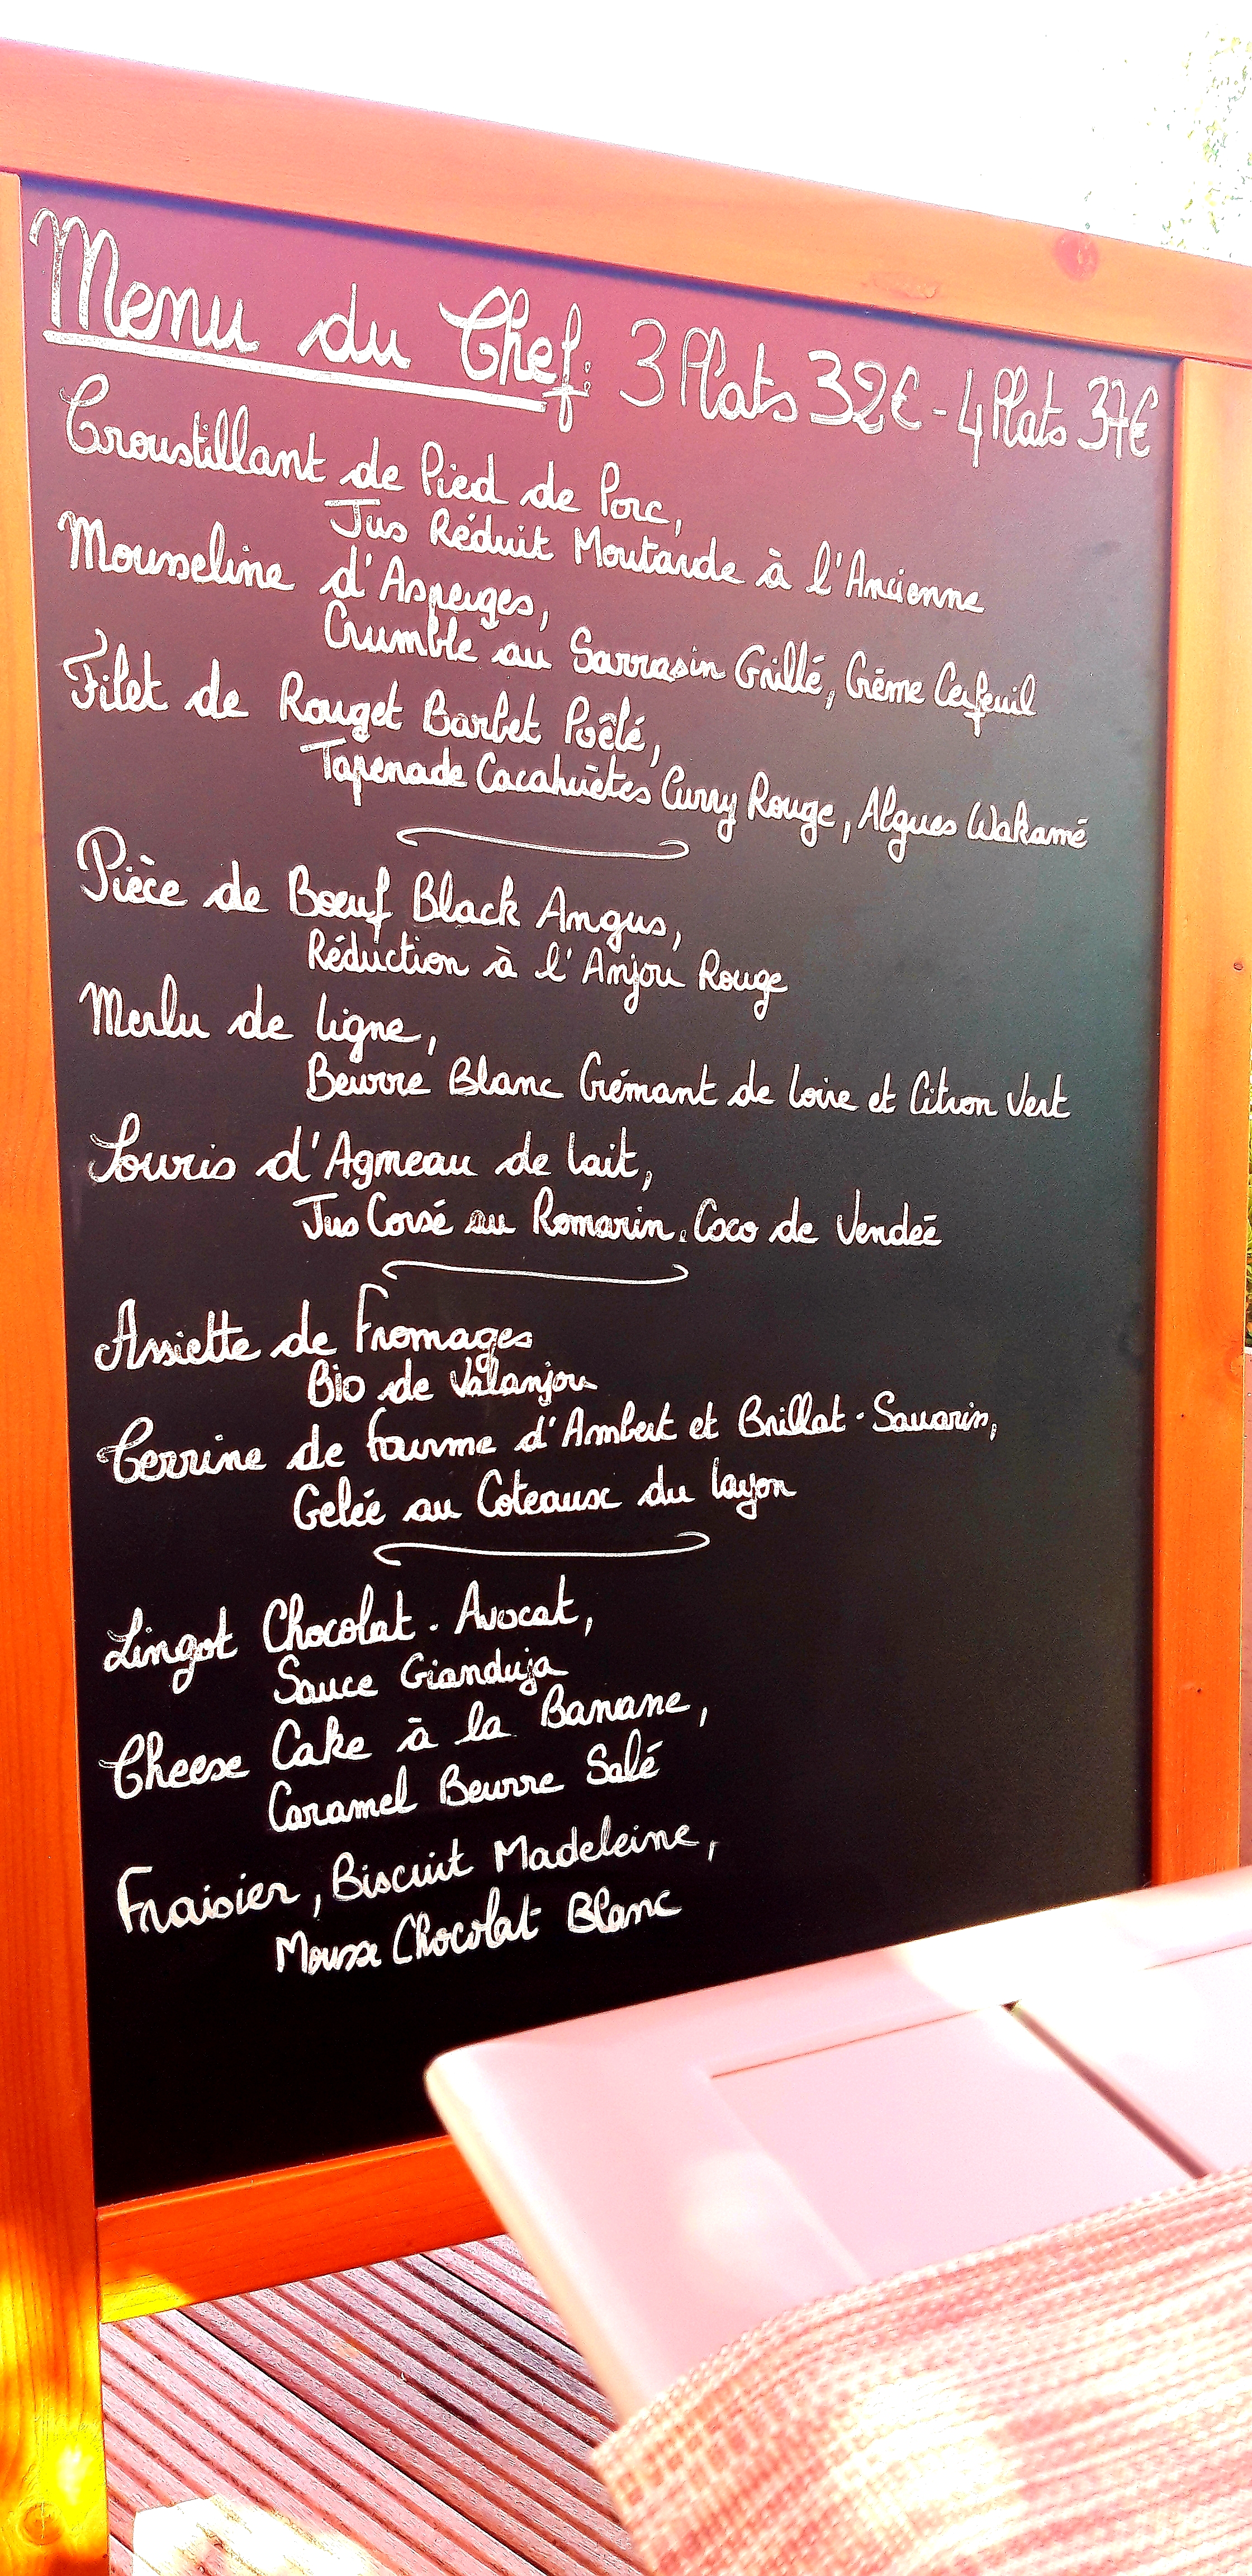 Menu du Chef: 3 Plats 32€ - 4 Plats 37€
Croustillant de Pied de Porc,
Jus Réduit Moutarde à l'Ancienne
Mousseline d'Asperges,
Crumble au Sarrasin Grillé, Crème Cerfeuil
Filet de Rouget Barbet Poêlé,
Tapenade Cacahuètes Curry Rouge, Algues Wakamé
Pièce de Bœuf Black Angus,
Réduction à l'Anjou Rouge
Merlu de Ligne,
Beurre Blanc Crémant de Loire et Citron Vert
Souris d'Agneau de Lait,
Jus Corsé au Romarin, Coco de Vendéé
Assiette de Fromages
Bio de Valanjou
Terrine de Fourme d'Ambert et Brillat-Savarin,
Gelée au Coteaux du Layon
Lingot Chocolat-Avocat,
Sauce Gianduja
Cheese Cake à la Banane,
Caramel Beurre Salé
Fraisier, Biscuit Madeleine,
Mousse Chocolat Blanc